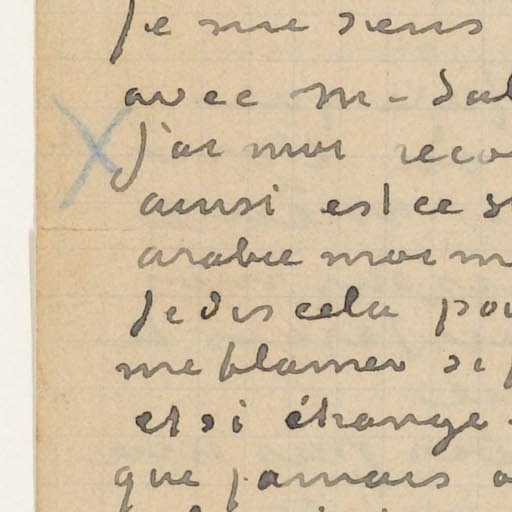 Je me sens
avec M - Sal
J'ai moi reco
ainsi est ce s
arabie moi m
Je dis cela pou
me blamer si
et si étrange
que jamais